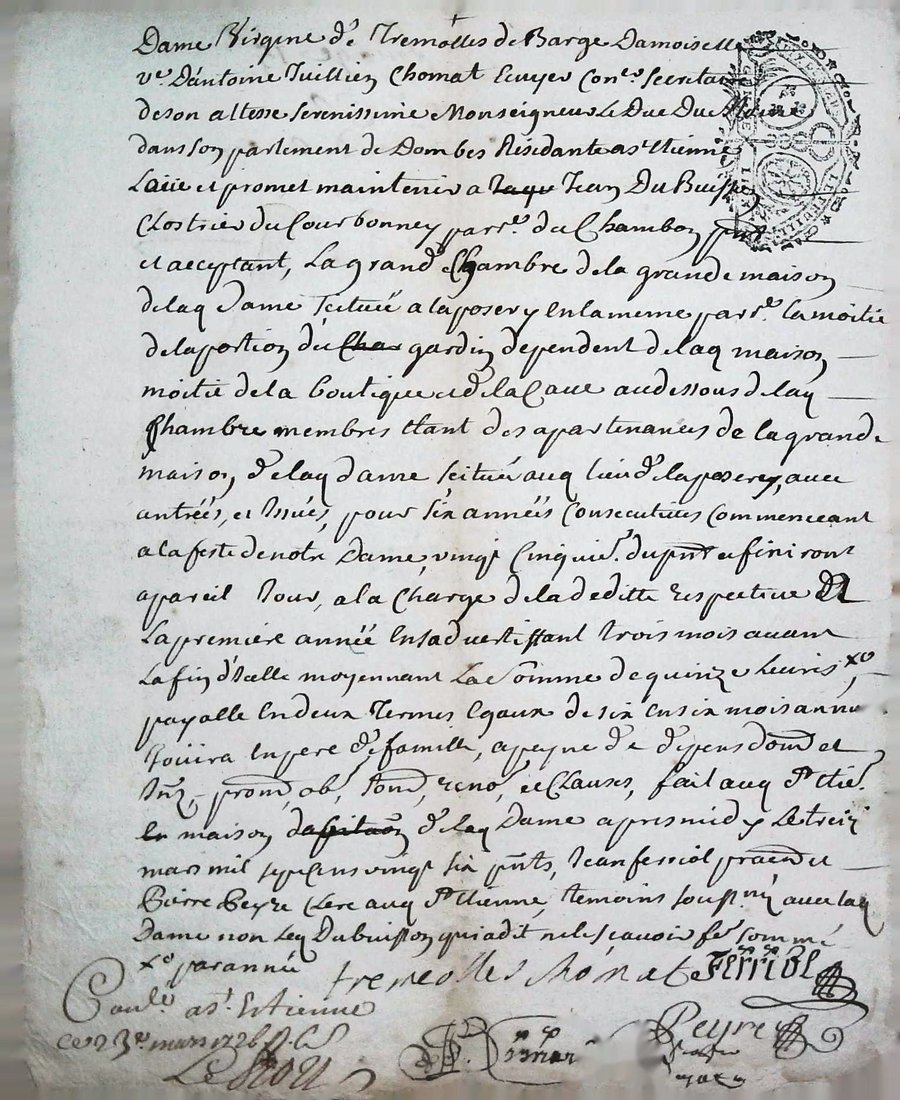 Dame Virgine de Tremolles de Barge Damoiselle
ve. Dantoine Juillien Chomat Ecuyer Coner. Secretaire
de son altesse serenissime Monseigneur Le Duc Du Maine
dans son parlement de Dombes Residante a st Etienne
Laüe et promet maintenir a Jean Du Buisson
Clostrier du Courbonney parr.e du Chambon pnt
et acceptant, La grand Chambre de la grande maison
de laq Dame scituée a laposery en la meme parr.e la moitie
de la portion du gardin dependent de laq maison
moitie de la boutique et de la Cave au dessous de laq
Chambre membres etant des apartenances de la grande
maison de laq dame scituée auq lieu de laposery, avec
antrées, et Issües, pour six années Consecutives Commenceant
a la feste de notre Dame, vingt Cinquie. du pnt et finiront
a pareil Jour, a la Charge de la deditte respective
La premiere année En sadvertissant trois mois avant
La fin d'Icelle moyennant La Somme de quinze Livres xo,
payable En deux Termes Egaux de six en six mois
Joüira En pere de famille, a peyne de depens dom et
Int, prom, ob, soum, renon, et Clauses, fait auq St Etie.
maison de laq Dame apres midy Le treize
mars mil sept cens vingt six pnts, Jean ferriol et
Pierre Peyre Clerc auq St Etienne, temoins souss.nés avec laq
Dame non Leq Dubuisson qui a dit ne le scavoir fe. sommé
xo par année
tremolles Chomat Ferriol
Conle. a st Estienne
ce 23e mars 1726
Peyre